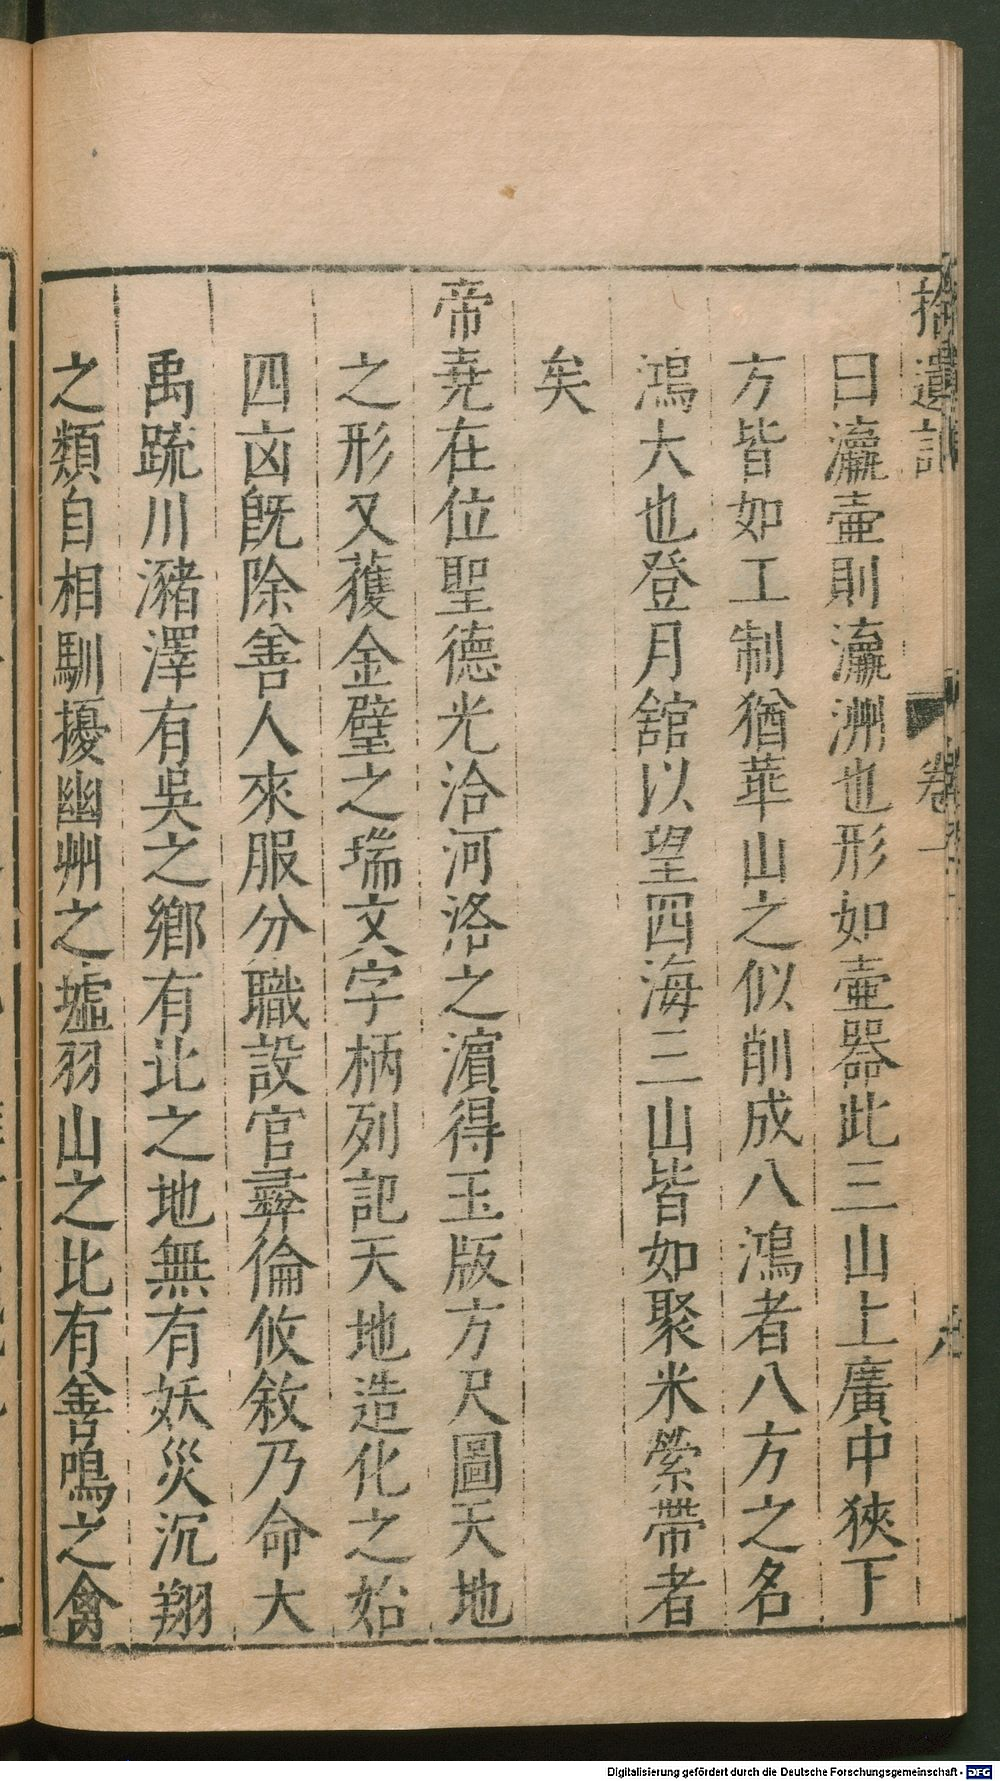 拾遺記 卷一
曰瀛壷則瀛洲也形如壷器此三山上廣中狹下
方皆如工制猶華山之似削成八鴻者八方之名
鴻大也登月舘以望四海三山皆如聚米縈帶者
矣
帝堯在位聖德光洽河洛之濵得玉版方尺圖天地
之形又獲金璧之瑞文字柄列記天地造化之始
四凶旣除善人來服分職設官彛倫攸敘乃命大
禹疏川瀦澤有吳之鄉有北之地無有妖災沉翔
之類自相馴擾幽州之墟羽山之北有善鳴之禽
Digitalisierung gefördert durch die Deutsche Forschungsgemeinschaft - DFG